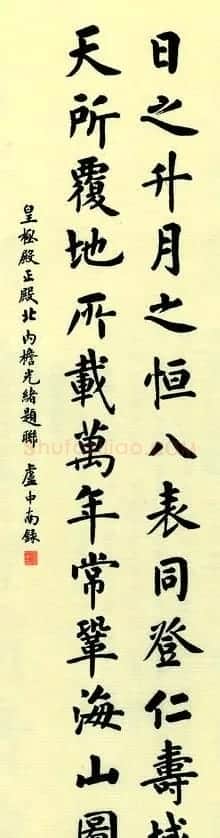 日之升月之恒八表同登仁壽域
天所覆地所載萬年常鞏海山圖
皇極殿正殿北內檐光緒題聯 盧中南錄